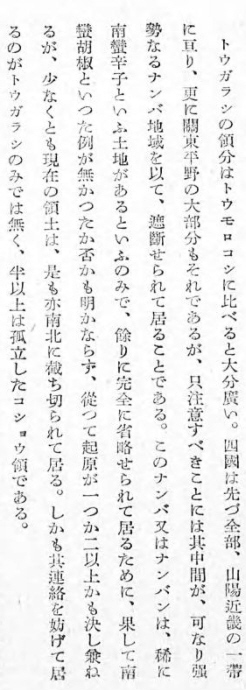 トウガラシの領分はトウモロコシに比べると大分廣い。四國は先づ全部、山陽近畿の一帶
に亙り、更に關東平野の大部分もそれであるが、只注意すべきことには其中間が、可なり强
勢なるナンバ地域を以て、遮斷せられて居ることである。このナンバ又はナンバンは、稀に
南蠻辛子といふ土地があるといふのみで、餘りに完全に省略せられて居るために、果して南
蠻胡椒といつた例が無かつたか否かも明かならず、從つて起原が一つか二以上かも決し兼ね
るが、少なくとも現在の領土は、是も亦南北に截ち切られて居る。しかも其連絡を妨げて居
るのがトウガラシのみでは無く、半以上は孤立したコショウ領である。